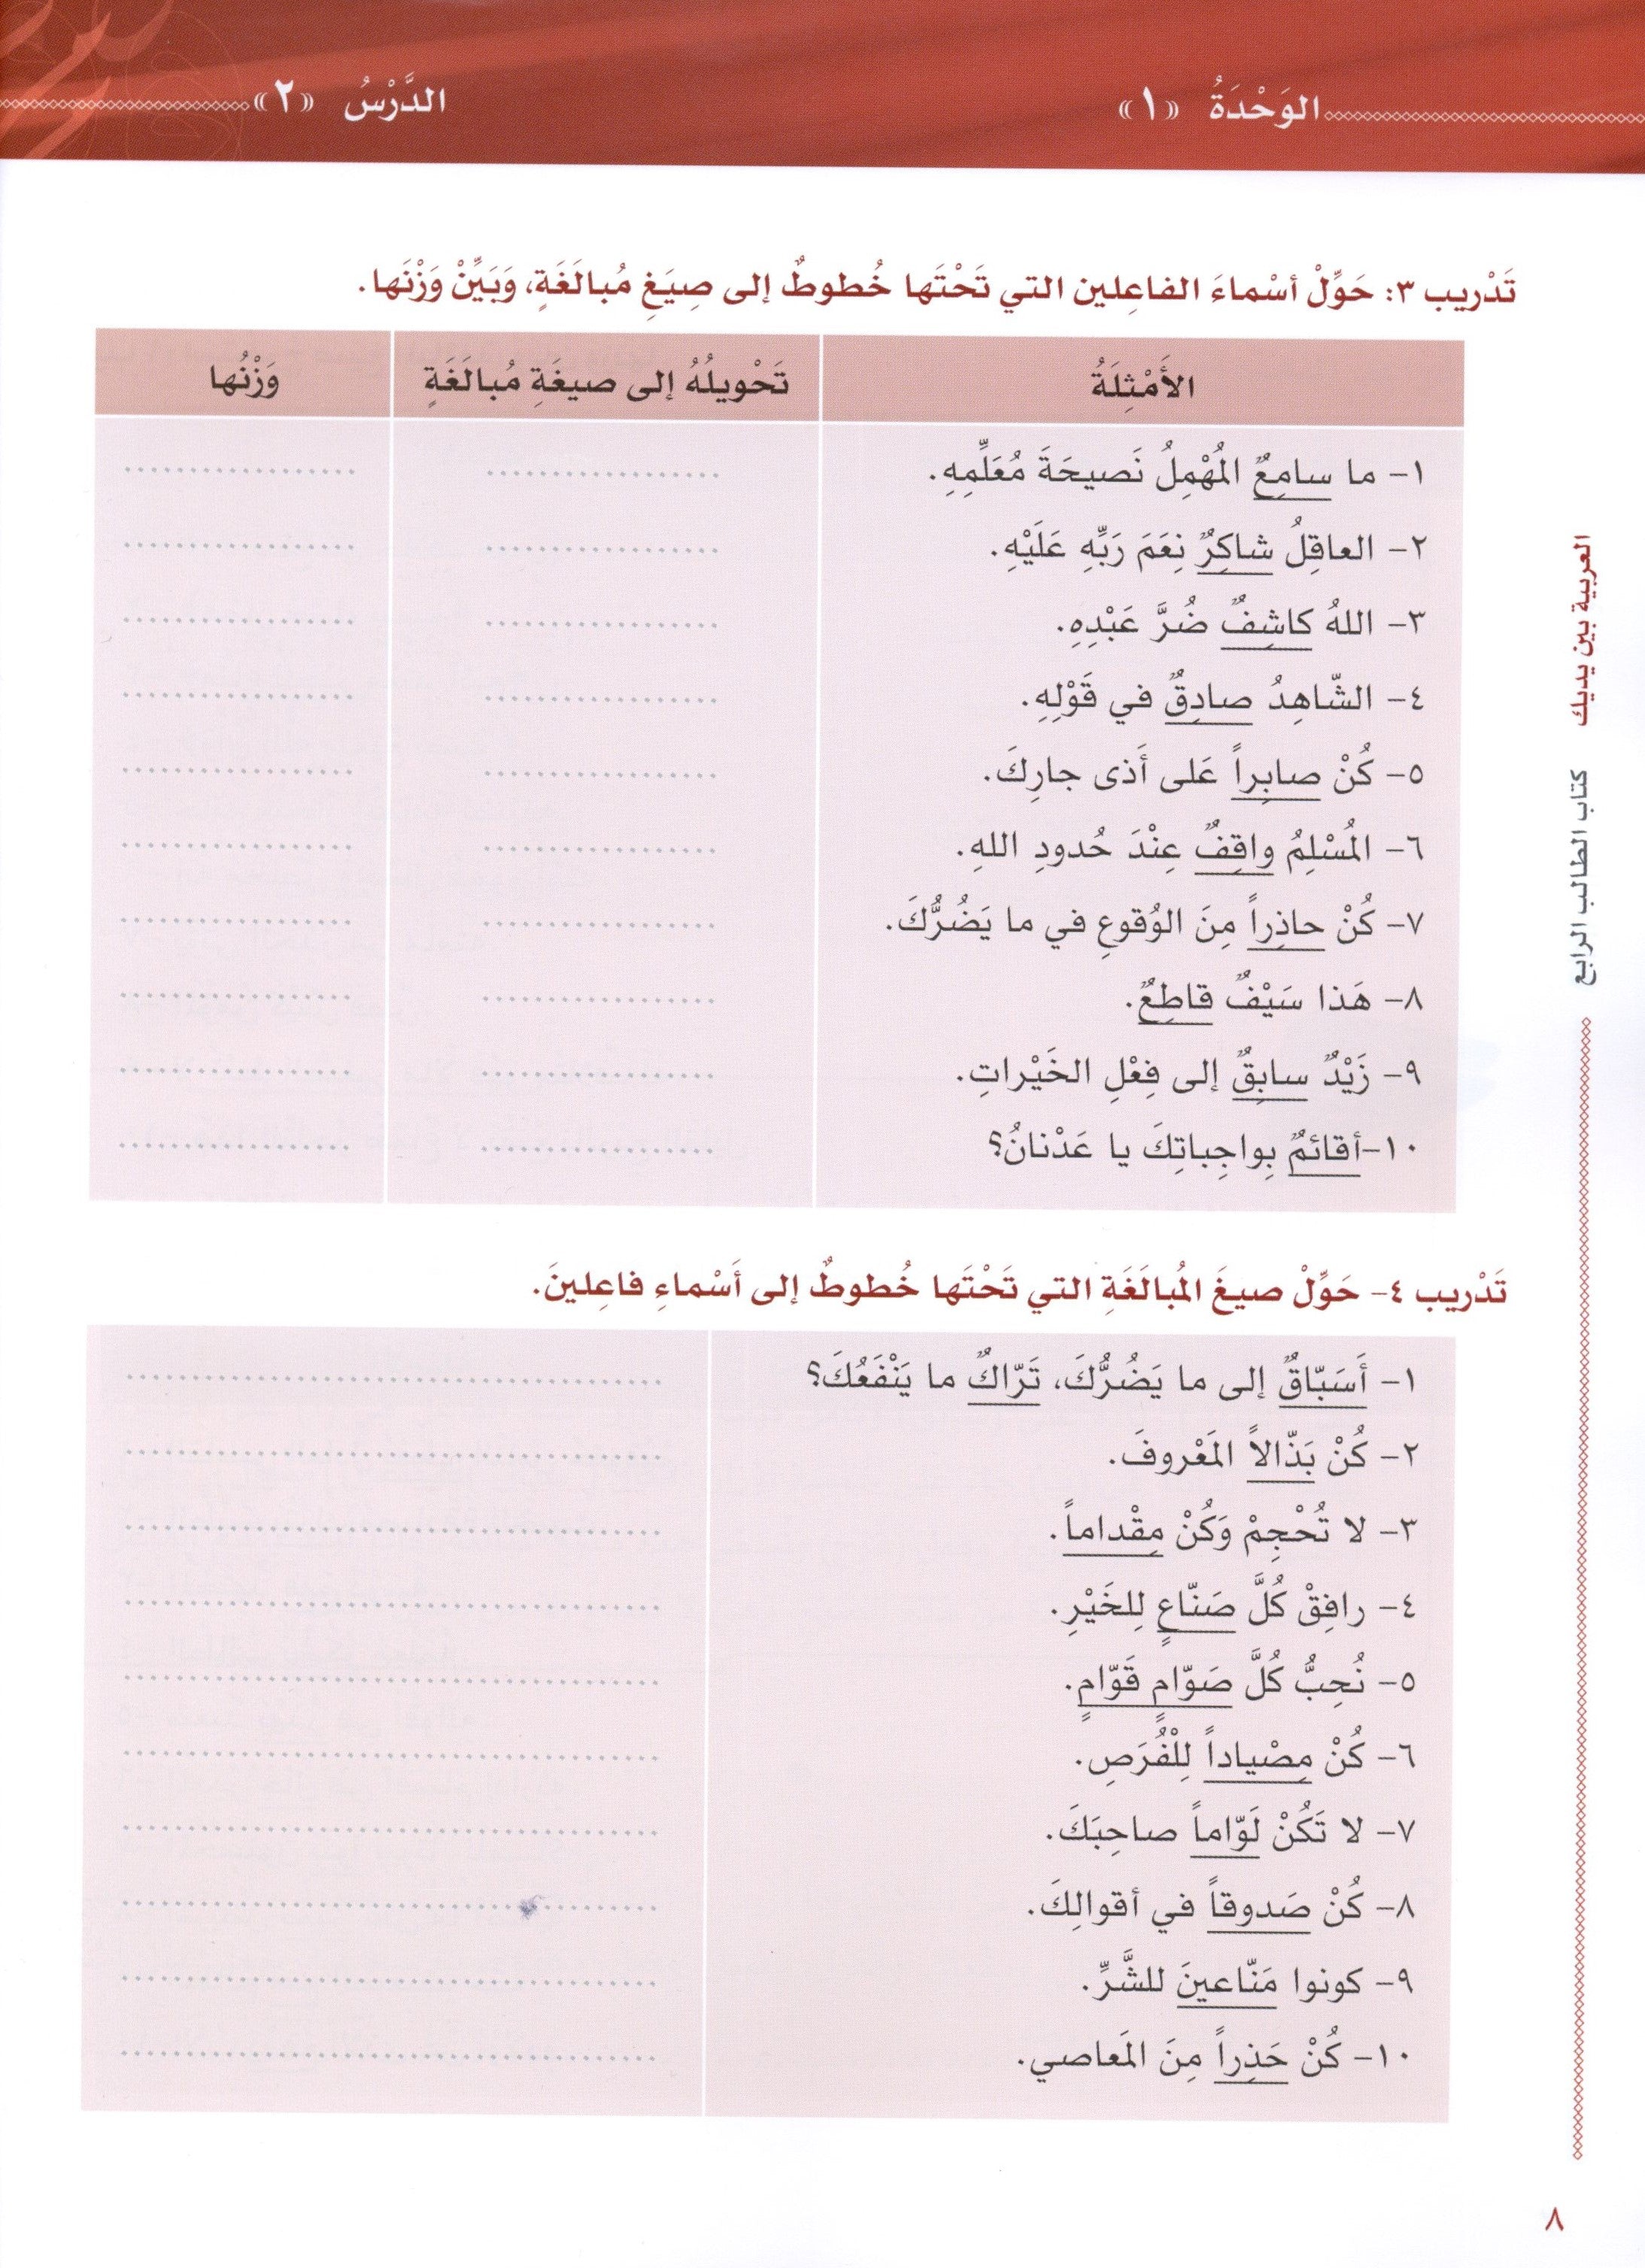 الوَحْدَةُ «١» الدَّرْسُ «٢»
تَدْريب ٣: حَوِّلْ أسْماءَ الفاعِلين التي تَحْتَها خُطوطٌ إلى صِيَغِ مُبالَغَةٍ، وَبَيِّنْ وَزْنَها.
الأَمْثِلَةُ تَحْويلُهُ إلى صيغَةِ مُبالَغَةٍ وَزْنُها
١- ما سامِعٌ المُهْمِلُ نَصيحَةَ مُعَلِّمِهِ.
٢- العاقِلُ شاكِرٌ نِعَمَ رَبِّهِ عَلَيْهِ.
٣- اللهُ كاشِفٌ ضُرَّ عَبْدِهِ.
٤- الشّاهِدُ صادِقٌ في قَوْلِهِ.
٥- كُنْ صابِراً عَلى أَذى جارِكَ.
٦- المُسْلِمُ واقِفٌ عِنْدَ حُدودِ اللهِ.
٧- كُنْ حاذِراً مِنَ الوُقوعِ في ما يَضُرُّكَ.
٨- هَذا سَيْفٌ قاطِعٌ.
٩- زَيْدٌ سابِقٌ إلى فِعْلِ الخَيْراتِ.
١٠-أقائمٌ بِواجِباتِكَ يا عَدْنانُ؟
تَدْريب ٤- حَوِّلْ صيغَ المُبالَغَةِ التي تَحْتَها خُطوطٌ إلى أَسْماءِ فاعِلينَ.
١- أَسَبّاقٌ إلى ما يَضُرُّكَ، تَرّاكٌ ما يَنْفَعُكَ؟
٢- كُنْ بَذّالاً المَعْروفَ.
٣- لا تُحْجِمْ وَكُنْ مِقْداماً.
٤- رافِقْ كُلَّ صَنّاعٍ لِلخَيْرِ.
٥- نُحِبُّ كُلَّ صَوّامٍ قَوّامٍ.
٦- كُنْ مِصْياداً لِلْفُرَصِ.
٧- لا تَكُنْ لَوّاماً صاحِبَكَ.
٨- كُنْ صَدوقاً في أقوالِكَ.
٩- كونوا مَنّاعينَ للشَّرِّ.
١٠- كُنْ حَذِراً مِنَ المَعاصي.
العربية بين يديك كتاب الطالب الرابع
٨